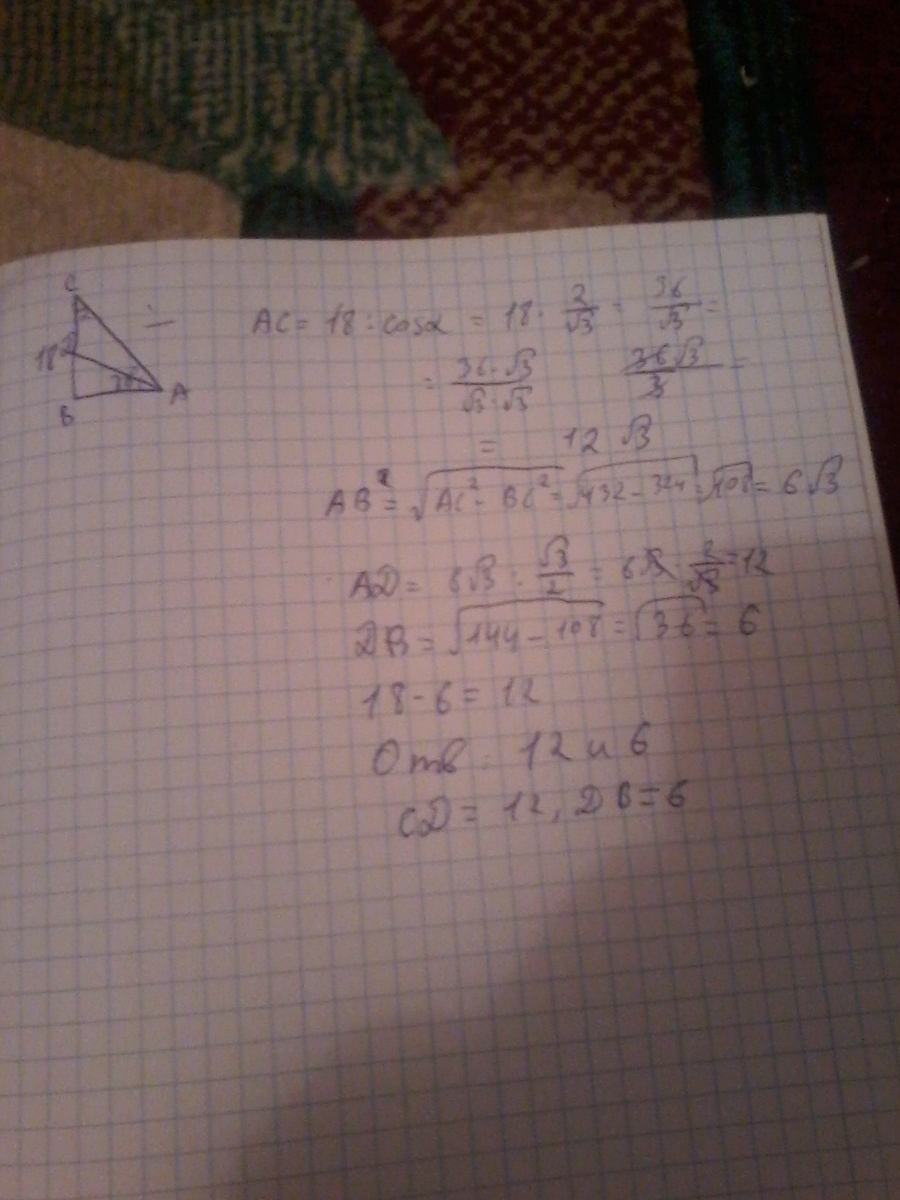 C
AC = 18 : cosα = 18 · 2/√3 = 36/√3 =
18
A
B
= 36·√3/√3·√3 36√3/3 =
= 12 √3
AB² = √AC² - BC² = √432 - 324 = √108 = 6√3
AD = 6√3 : √3/2 = 6√3 · 2/√3 = 12
DB = √144 - 108 = √36 = 6
18 - 6 = 12
Отв : 12 и 6
CD = 12, DB = 6